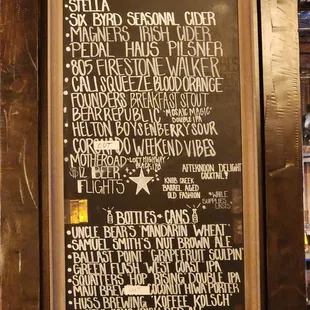 STELLA
SIX BYRD SEASONAL CIDER
MAGNERS IRISH CIDER
PEDAL HAUS PILSNER
805 FIRESTONE WALKER
CALI SQUEEZE BLOOD ORANGE
FOUNDERS BREAKFAST STOUT
BEAR REPUBLIC "MOSAIC MAGIC"
DOUBLE IPA
HELTON BOYSENBERRY SOUR
WEEKEND VIBES
MOTHEROAD - LOST HIGHWAY
BLACK IPA
$12 BEER
FLIGHTS
AFTERNOON DELIGHT
COCKTAIL
KNOB CREEK
BARREL AGED
OLD FASHION
*WHILE
SUPPLIES
BOTTLES + CANS
UNCLE BEAR'S MANDARIN WHEAT
SAMUEL SMITH'S NUT BROWN ALE
BALLAST POINT "GRAPEFRUIT SCULPIN"
GREEN FLASH WEST COAST IPA
SQUATTERS HOP RISING DOUBLE IPA
MAUI BREW COCONUT HIWA PORTER
HUSS BREWING "KOFFEE KOLSCH"